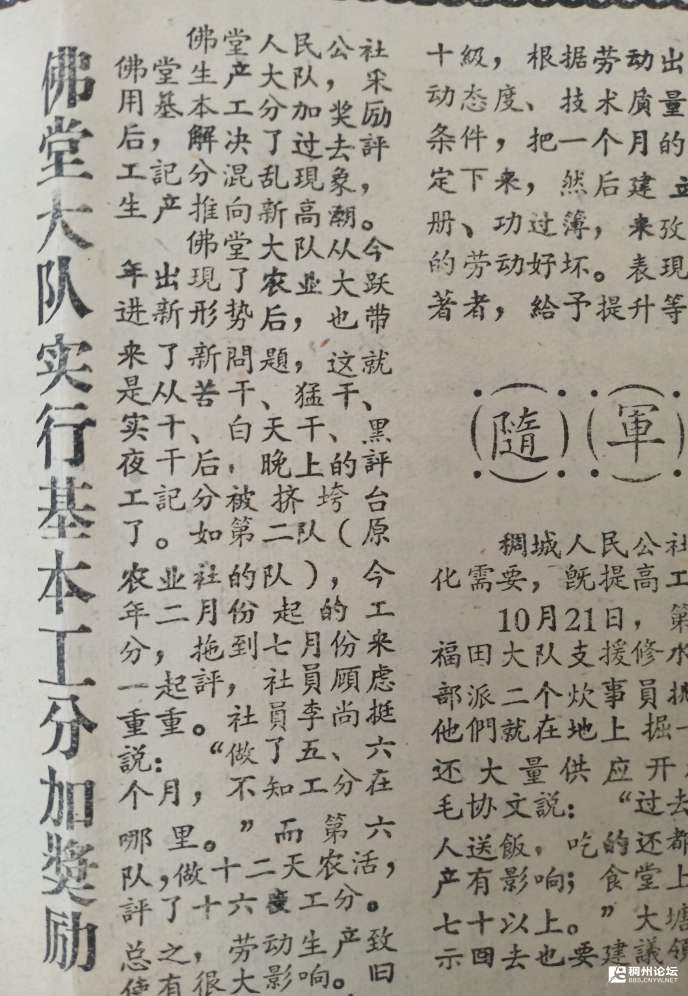 佛堂大队实行基本工分加獎励
佛堂人民公社
佛堂生产大队，采
用基本工分加奖励
后，解决了过去評
工記分混乱現象，
生产推向新高潮。
佛堂大队从今
年出現了农业大跃
进新形势后，也带
来了新問題，这就
是从苦干、猛干、
实干、白天干、黑
夜干后，晚上的評
工記分被挤垮台
了。如第二队（原
农业社的队），今
年二月份起的工
分，拖到七月份来
一起評，社員顾虑
重重。社員李尚挺
說：“做了五、六
个月，不知工分在
哪里。”而第六
队，做十二天农活，
評了十六工分。
总之，劳动生产致
有很大影响。旧
十級，根据劳动出
动态度、技术质量
条件，把一个月的
定下来，然后建立
册、功过簿，来攷
的劳动好坏。表現
著者，給予提升等
（隨）（軍）
稠城人民公社
化需要，旣提高工
10月21日，第
福田大队支援修水
部派二个炊事員挑
他們就在地上掘一
还大量供应开
毛协文說：“过去
人送飯，吃的还都
产有影响；食堂上
七十以上。”大塘
示回去也要建議領
稠州论坛
BBS.CNYW.NET